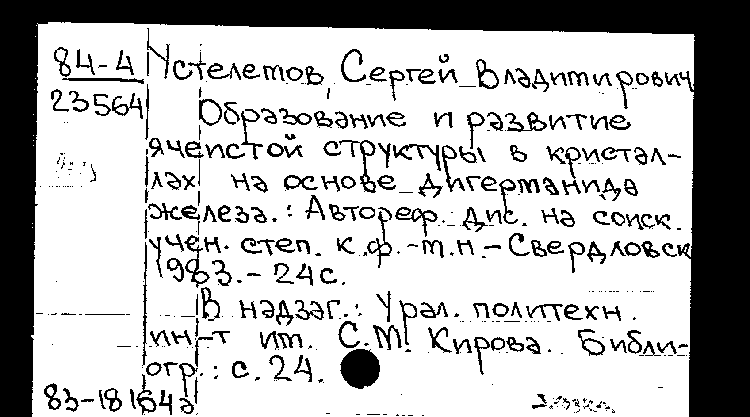 84-4
23564
Устелемов, Сергей Владимирович
Образование и развитие
ячеистой структуры в кристал-
лах на основе дигерманида
железа.: Автореф. дис. на соиск.
учен. степ. к.ф.-м.н.-Свердловск
1983.-24с.
В надзаг.: Урал. политехн.
ин-т им. С.М. Кирова. Библи-
огр.: с. 24.
83-18164а